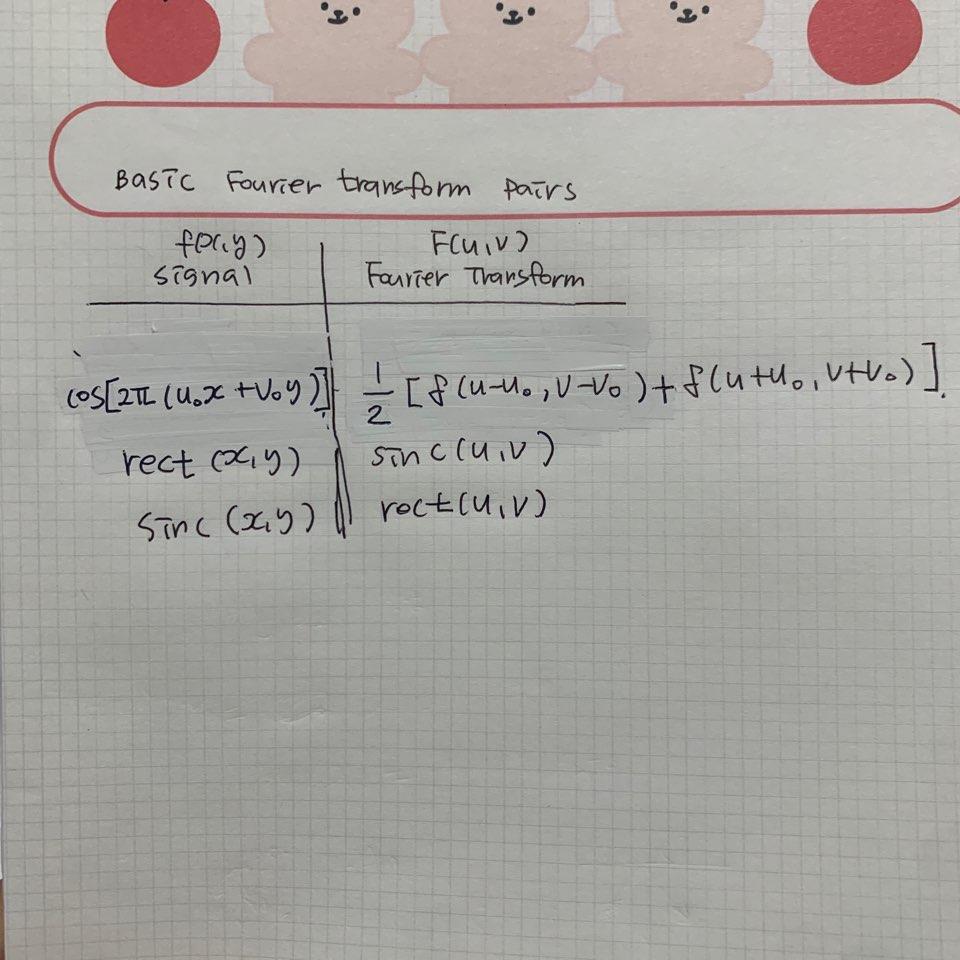 Basic Fourier transform pairs
f(x,y) F(u,v)
signal Fourier Transform
cos[2π(u₀x+v₀y)] 1/2 [δ(u-u₀,v-v₀)+δ(u+u₀,v+v₀)].
rect (x,y) sinc(u,v)
sinc (x,y) rect(u,v)